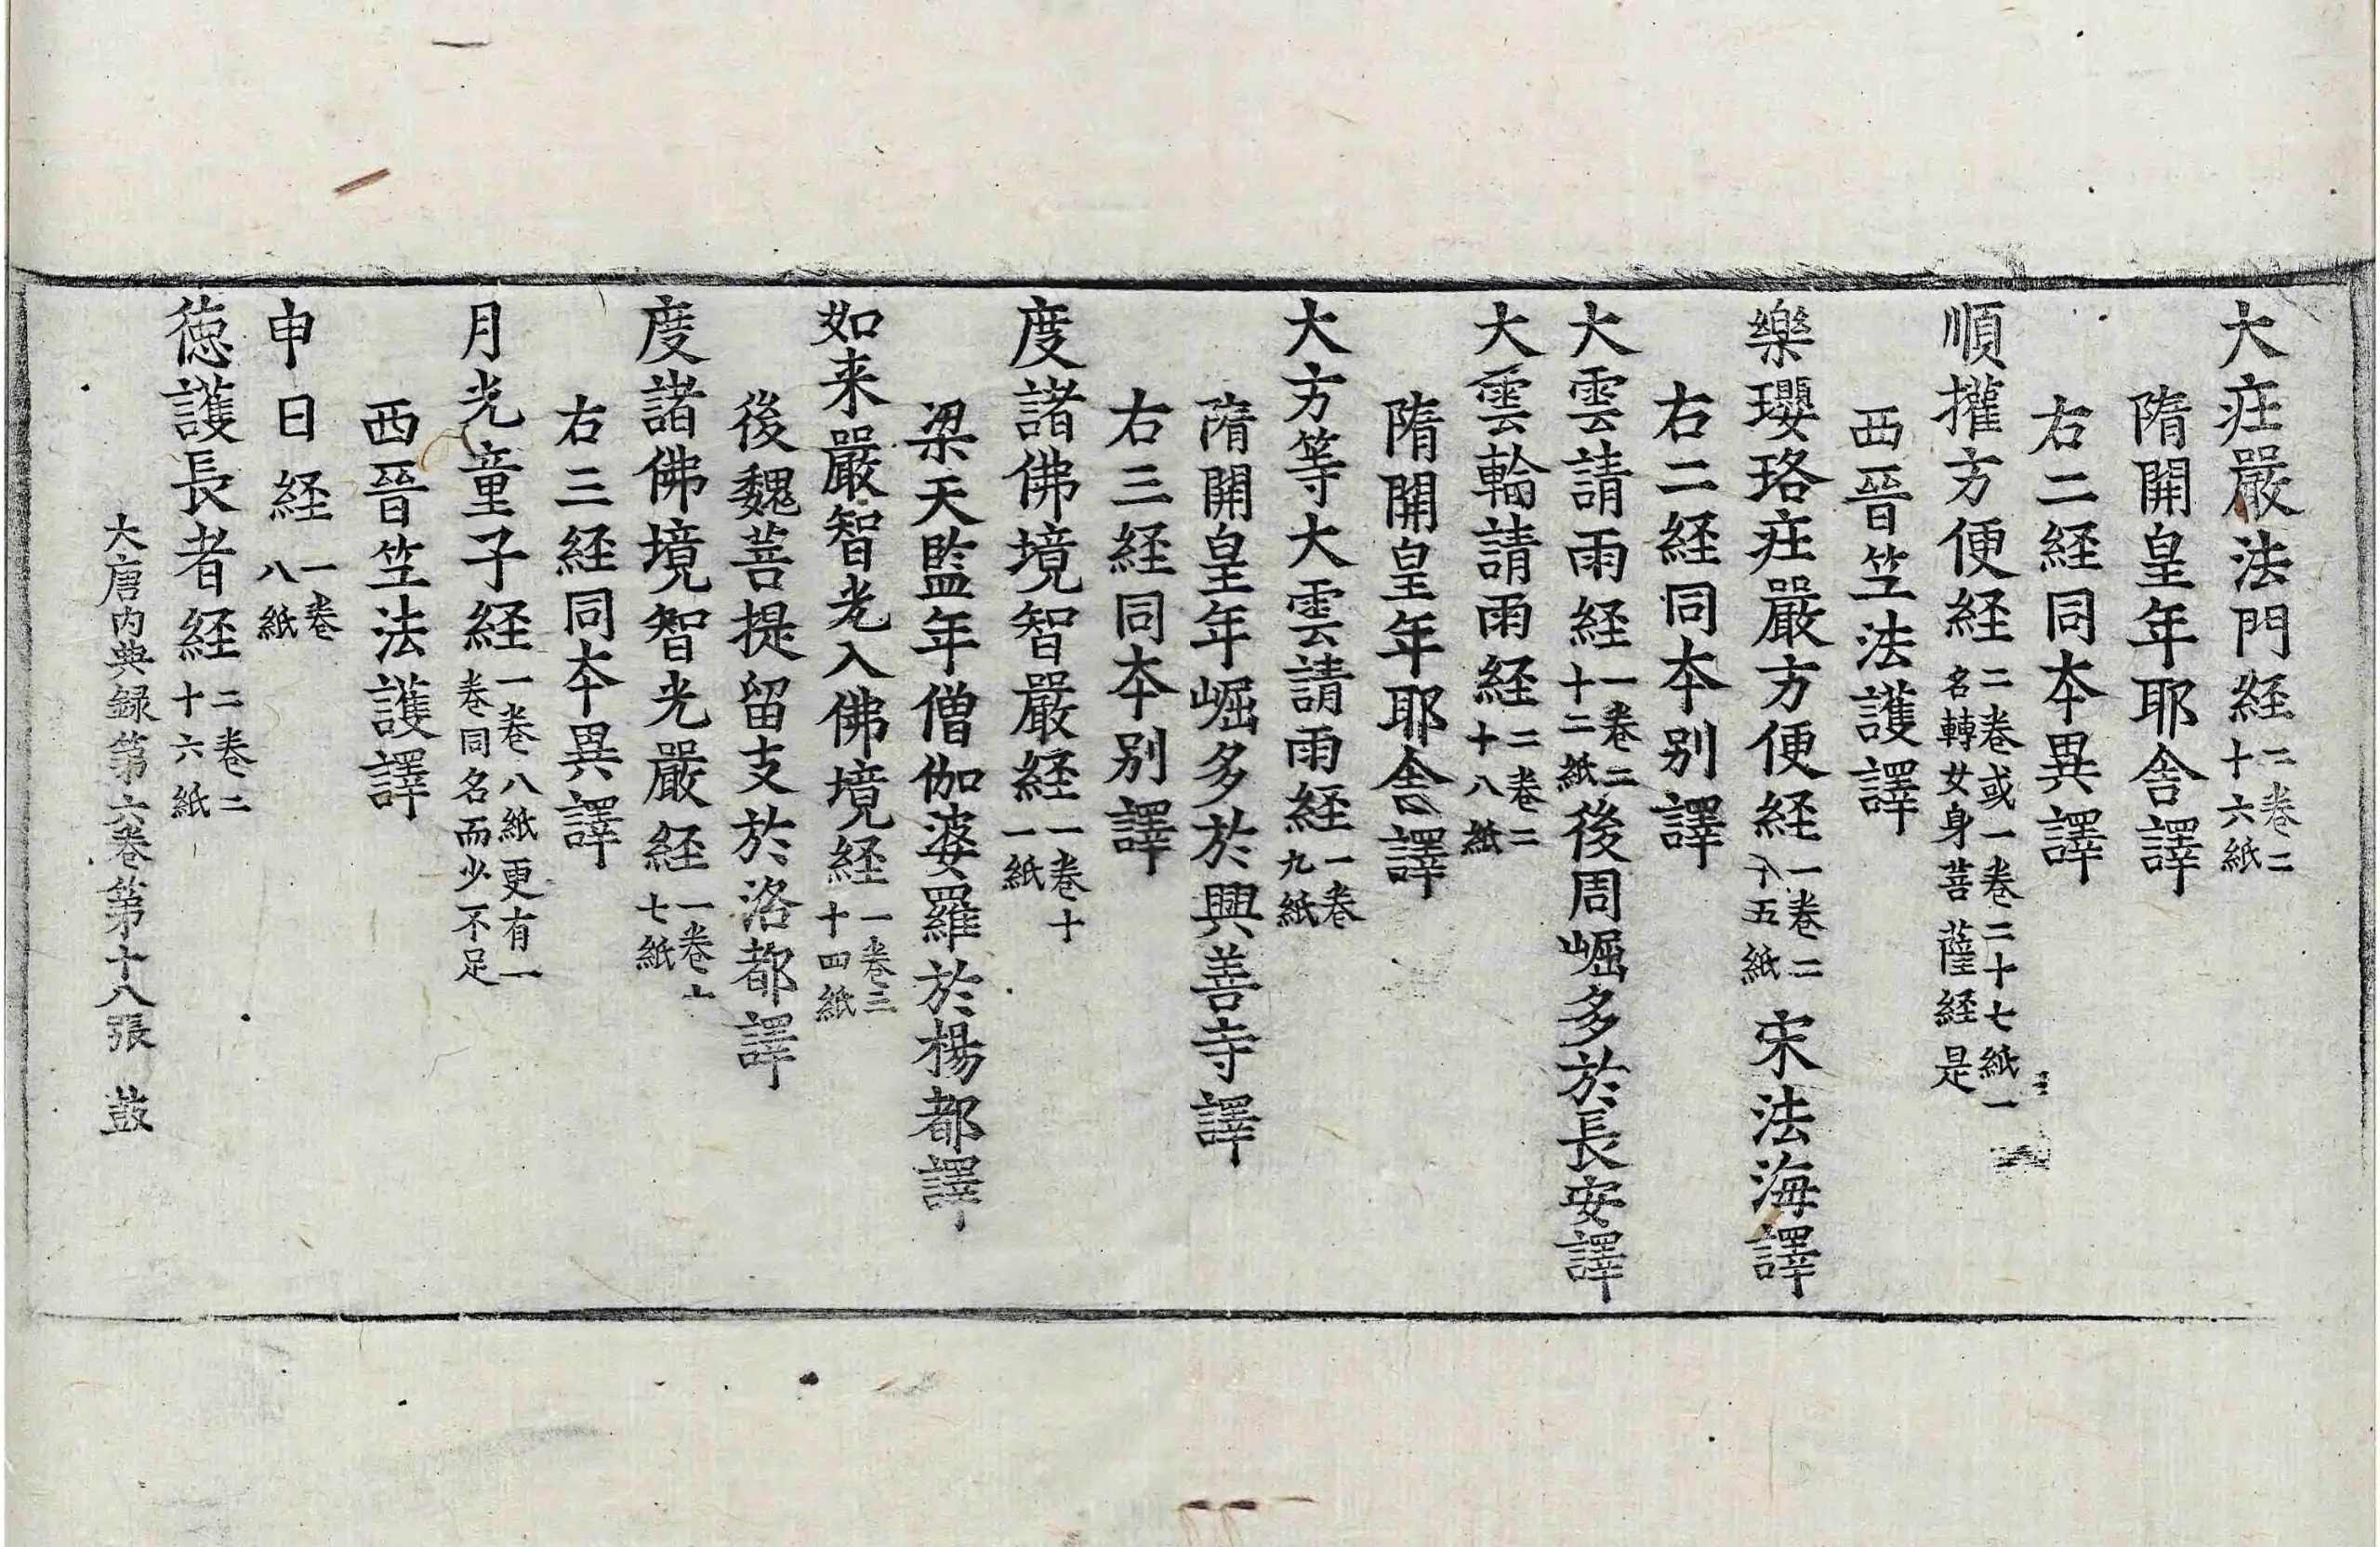 大莊嚴法門経二卷二十六紙
隋開皇年耶舎譯
右二経同本異譯
順攉方便経二卷或一卷二十七紙一名轉女身菩薩経是
西晉笁法護譯
樂瓔珞莊嚴方便経一卷二十五紙宋法海譯
右二経同本别譯
大雲請雨経一卷二十二紙後周崛多於長安譯
大雲輪請雨経二卷二十八紙
隋開皇年耶舎譯
大方等大雲請雨経一卷九紙
隋開皇年崛多於興善寺譯
右三経同本别譯
度諸佛境智嚴経一卷十一紙
梁天監年僧伽婆羅於楊都譯
如来嚴智光入佛境経一卷三十四紙
後魏菩提留支於洛都譯
度諸佛境智光嚴経一卷十七紙
右三経同本異譯
月光童子経一卷八紙更有一卷同名而少不足
西晉笁法護譯
申日経一卷八紙
徳護長者経二卷二十六紙
大唐内典録第六卷第十八張 鼓